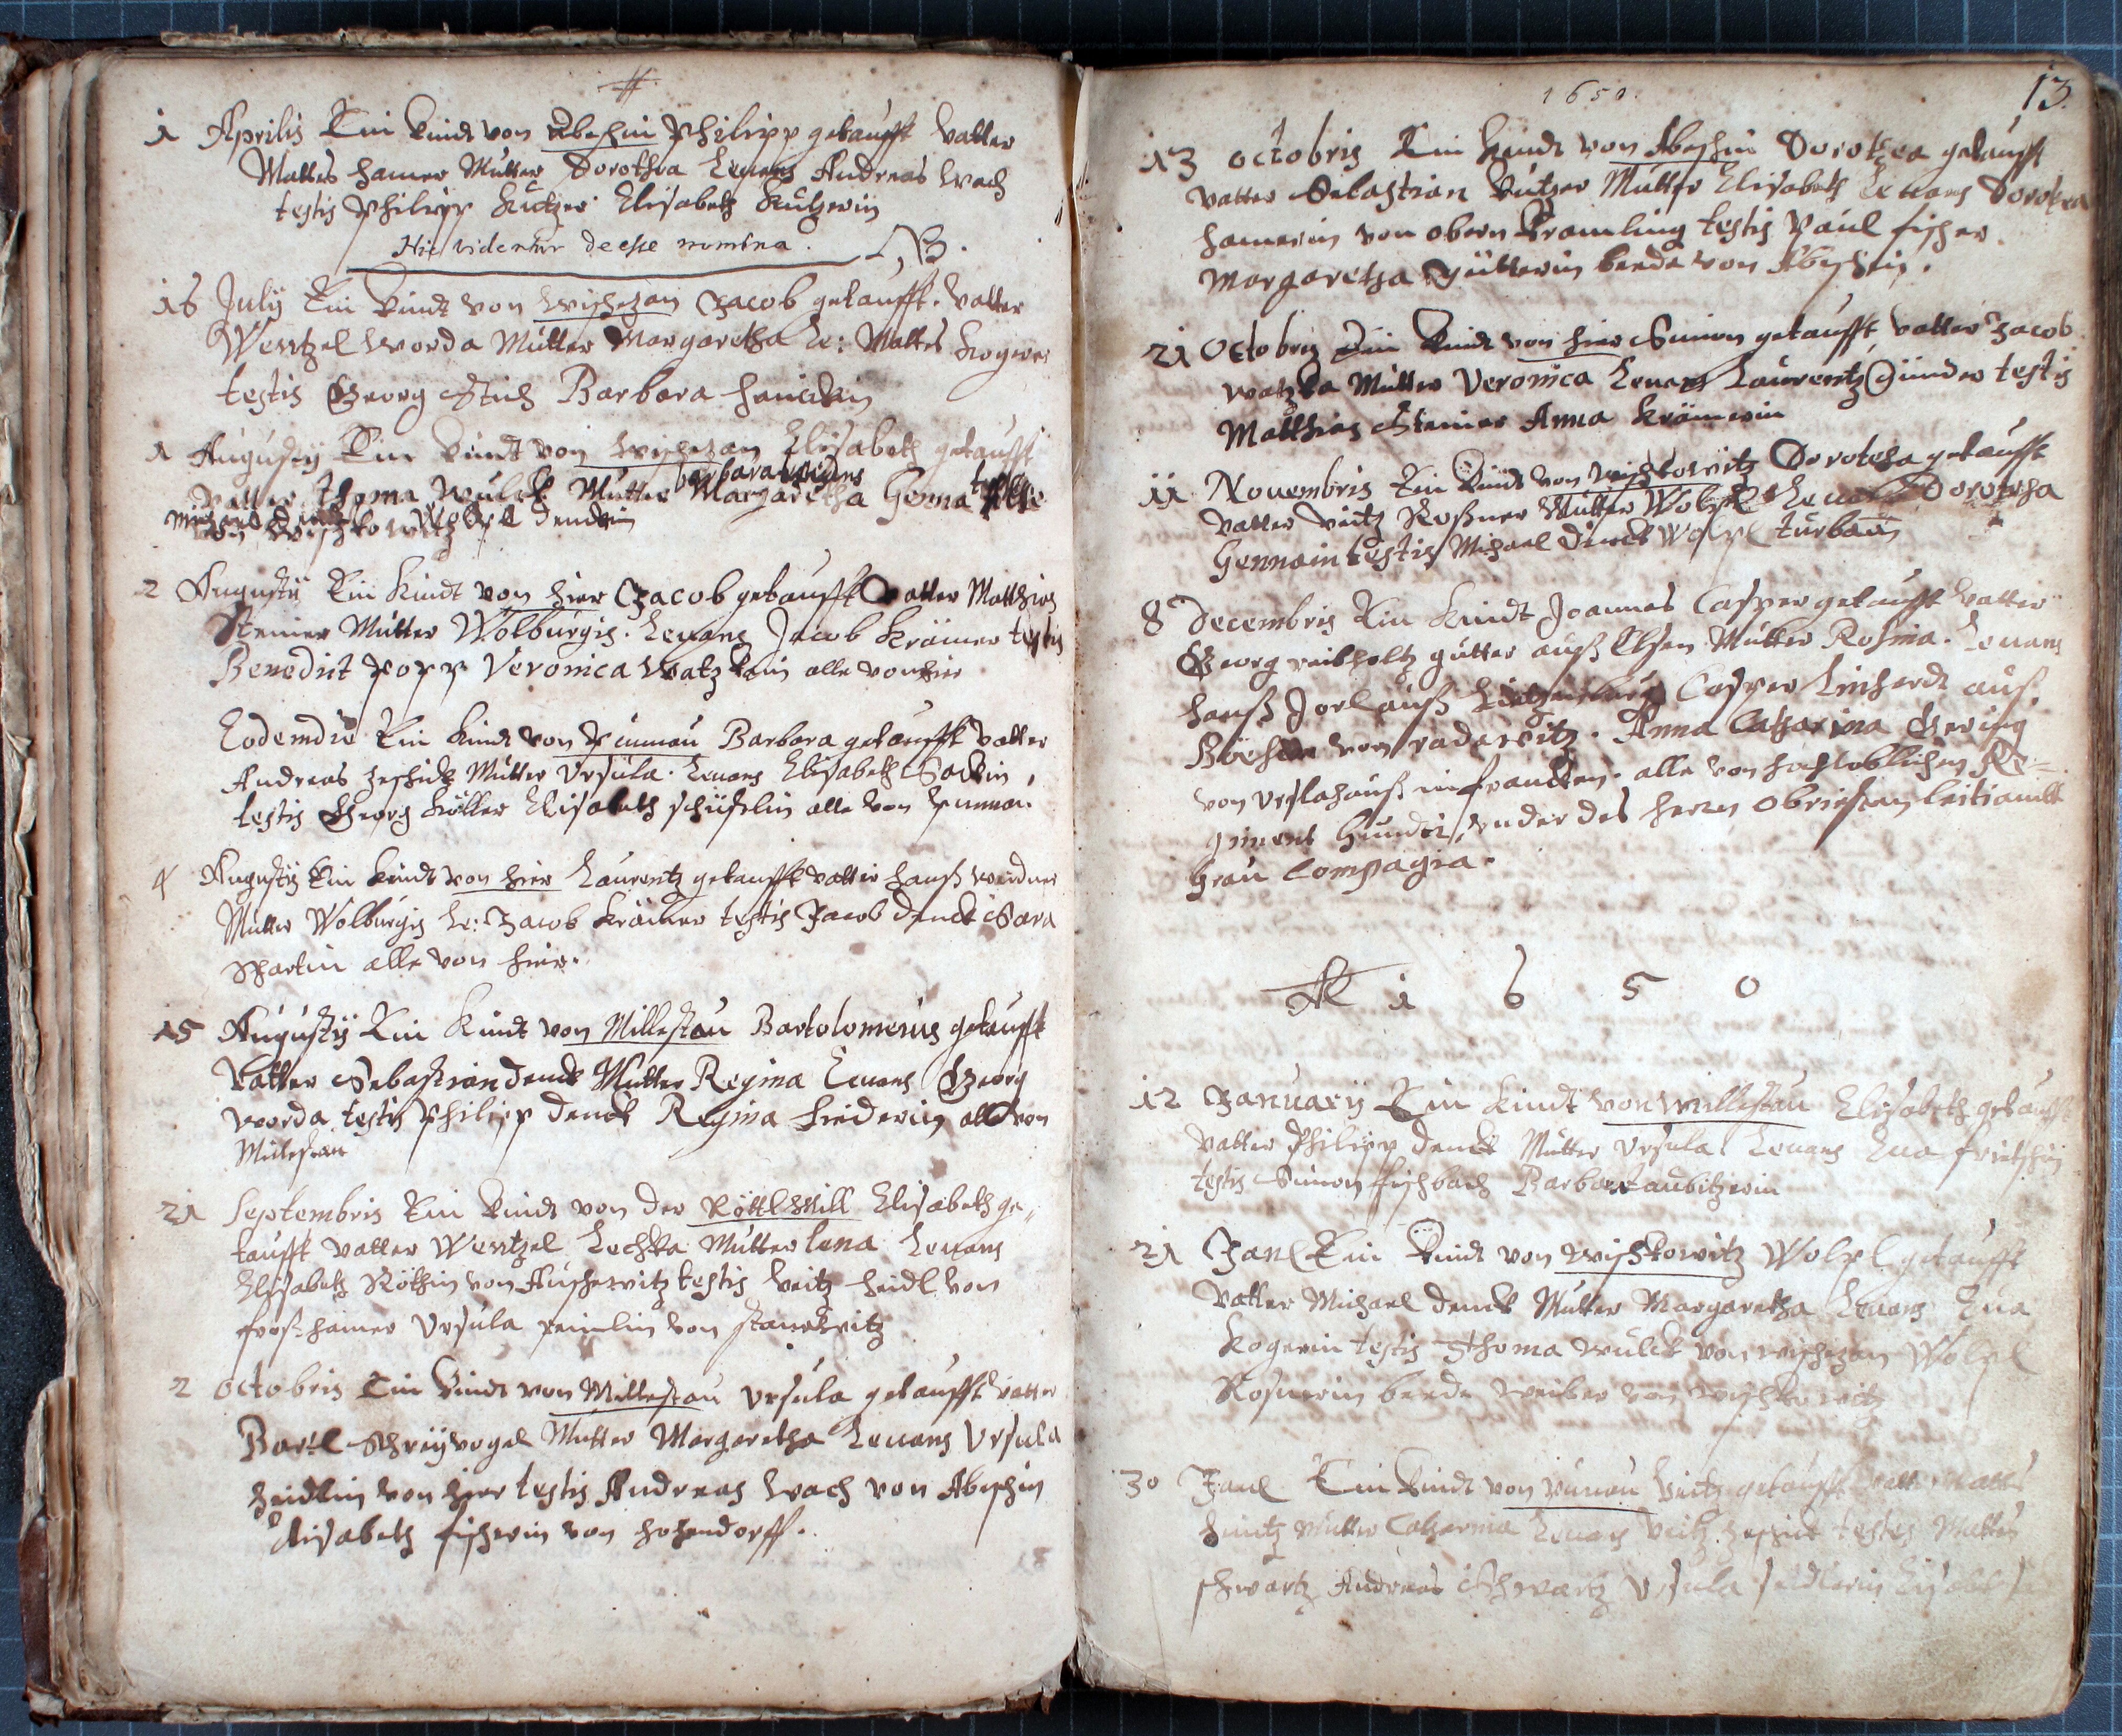 1 Aprilis Ein kindt von Abeschin Philipp getaufft Vatter
Mattes hamer Mutter Dorothea Leuans Andreas Wach
testis Philipp Kutzer Elisabeth Kutzerin
Hic videntur deesse nomina. NB.
16 Julij Ein kindt von Wischezan Jacob getaufft. Vatter
Wentzel Worda Mutter Margaretha Le: Mattes Kogerer
testis Georg Stich Barbara
1 Augustij Ein kindt von Wischezan Elisabeth getaufft
barbara
Vatter Thoma Wulck Mutter Margaretha
von Wischkowitz Wolpl Denckin
2 Augustij Ein Kindt von hier Jacob getaufft Vatter Matthies
Steiner Mutter Wolburgis. Leuans Jacob Krämer testis
Benedict Popp Veronica Watzkain alle von hier
Eodem die Ein kindt von Punnau Barbara getaufft Vatter
Andreas Zeschick Mutter Ursula. Leuans Elisabeth Sackin,
testis Georg Köller Elisabeth schüslin alle von Punnau.
4 Augustij Ein kindt von hier Laurentz getaufft Vatter hanß Weidner
Mutter Wolburgis Le: Jacob Krämer testis Jacob Denck Sara
alle von hier.
15 Augustij Ein Kindt von Millestau Bartolomeus getaufft
Vatter Sebastian Denck Mutter Regina Leuans Georg
Worda testis Philipp Denck Regina alle von
Milestau
21 Septembris Ein kindt von der Röttl Mill Elisabeth ge-
taufft Vatter Wentzel Leschka Mutter Lena Leuans
Elisabeth Röthin von Auschowitz testis Veitz heidl von
Ursula von
2 Octobris Ein kindt von Millestau Ursula getaufft Vatter
Bartl Schreÿvogel Mutter Margaretha Leuans Ursula
heidlin von hier testis Andreas Wach von Abeschin
Elisabeth fischerin von hohendorff.
1650.
13.
13 Octobris Ein Kindt von Abeschin Dorothea getaufft
Vatter Sebastian Kutzer Mutter Elisabeth Leuans Dorothea
hamerin von obern Kramling testis Paul fischer
Margaretha Güttlerin beede von Abeschin.
21 Octobris Ein kindt von hier Simon getaufft, Vatter Jacob
Watzka Mutter Veronica Leuans Laurentz Günder testis
Matthies Steiner Anna Krämerin
11 Nouembris Ein kindt von Wischkowitz Doroteha getaufft
Vatter Veitz Roßner Mutter Wolpl Leuans Doroteha
testis Michael Denck Wolpl
8 Decembris Ein Kindt Joannes Casper getaufft Vatter
Georg reibholtz gütter auß Elsen Mutter Rosina. Leuans
hanß Jorl auß Casper Linhardt auß
Böehmen von radawitz. Anna Catharina
von Urslahauß in francken. alle von hochloblichen Re-
giment under des herrn obristen leitiandt
Grau Compagia.
A 1 6 5 0
12 Januarij Ein Kindt von Millestau Elisabeth getaufft
Vatter Philipp Denck Mutter Ursula Leuans Eua
testis Simon fischbach Barbara Taubitzerin
21 Jan Ein kindt von Wischkowitz Wolpl getaufft
Vatter Michael Denck Mutter Margaretha Leuans Eua
Kogerin testis Thoma Wulck von Wischezan Wolpl
Rosnerin beede weiber von Wischkowitz
30 Jan Ein kindt von Punau Veitz getaufft Vatter Mattes
heintz Mutter Catharina Leuans Veitz Zeschick testes Mattes
schwartz Andreas Schwartz Ursula